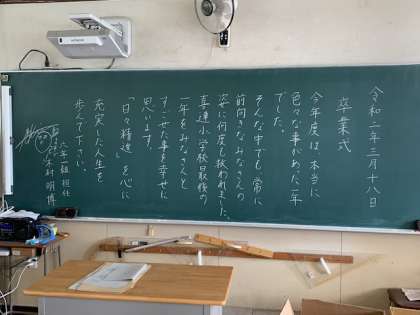 令和二年三月十八日
卒業式
今年度は本当に
色々な事があった一年
でした。
そんな中でも常に
前向きなみなさんの
姿に何度も救われました。
喜連小学校最後の
一年をみなさんと
すごせた事を幸せに
思います。
「日々精進」を心に
充実した人生を
歩んで下さい。
六年一組 担任
村 明博